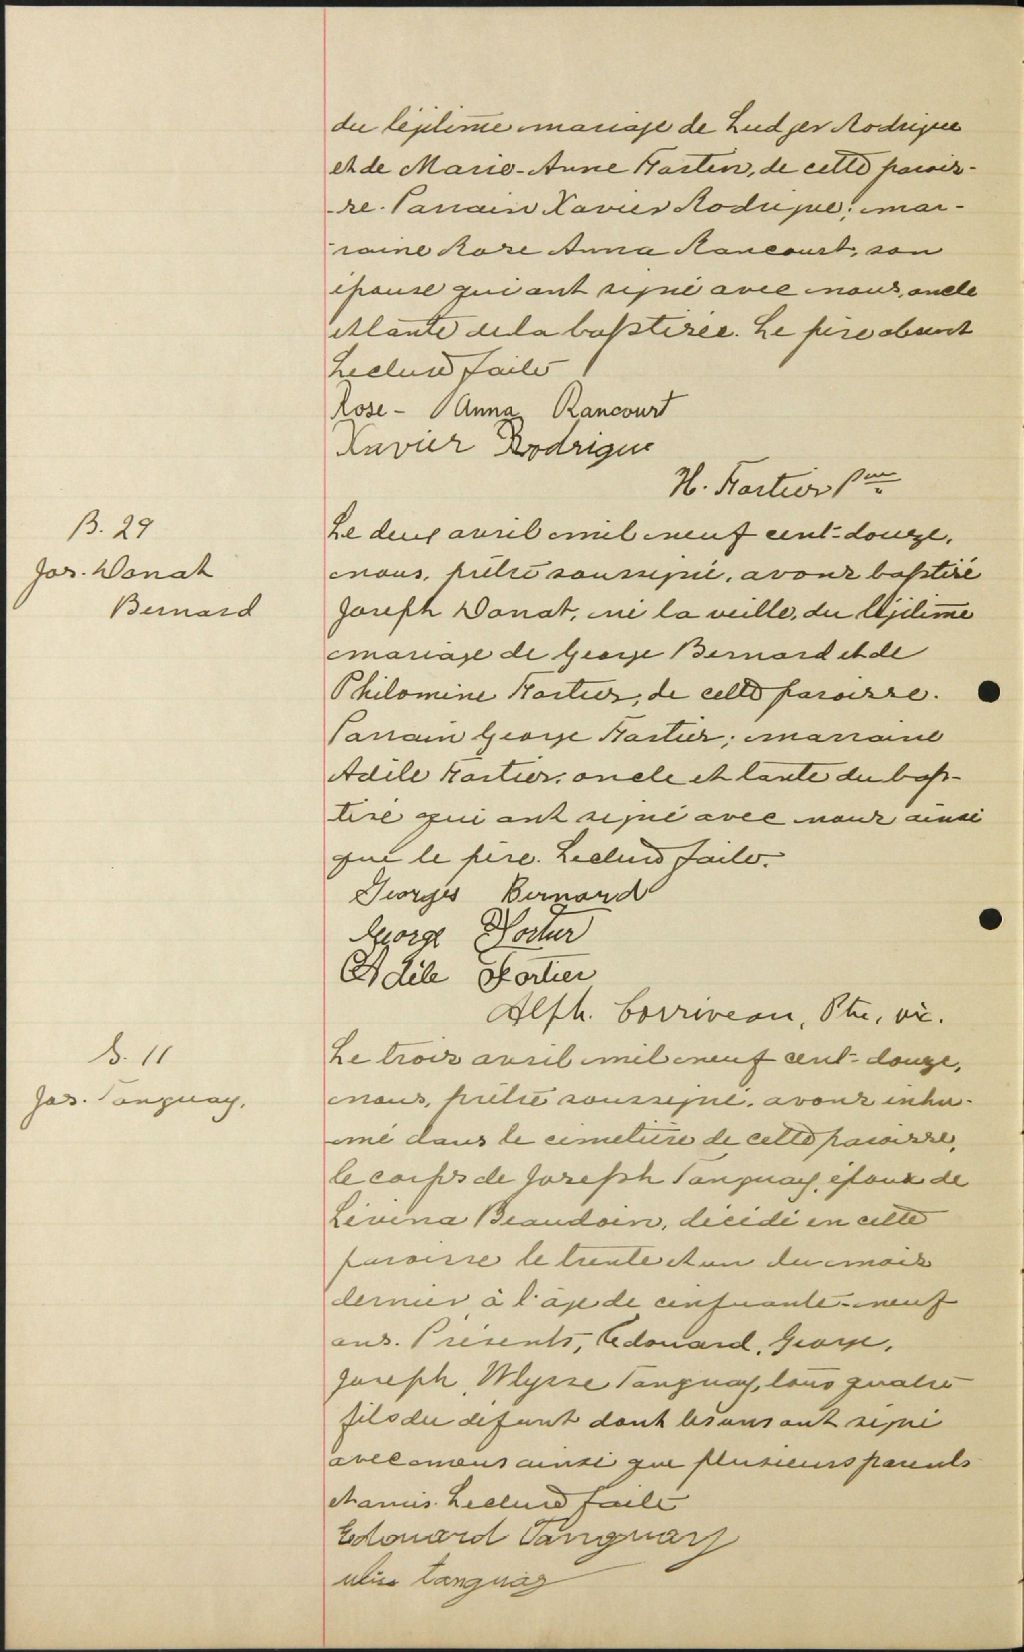 du légitime mariage de Ludger Rodrigue
et de Marie-Anne Fortin, de cette parois-
-se. Parrain Xavier Rodrigue; mar-
raine Rose Anna Rancourt, son
épouse qui ont signé avec nous, oncle
et tante de la baptisée. Le père absent
Lecture faite
Rose-Anna Rancourt
Xavier Rodrigue
H. Fortier Ptre
B. 29
Jos. Donat
Bernard
Le deux avril mil neuf cent-douze,
nous, prêtre soussigné, avons baptisé
Joseph Donat, né la veille, du légitime
mariage de George Bernard et de
Philomine Fortier, de cette paroisse.
Parrain George Fortier; marraine
Adèle Fortier, oncle et tante du bap-
tisé qui ont signé avec nous ainsi
que le père. Lecture faite.
Georges Bernard
George Fortier
Adèle Fortier
Alph. Corriveau, Ptre, vic.
S. 11
Jos. Tanguay,
Le trois avril mil neuf cent-douze,
nous, prêtre soussigné, avons inhu-
mé dans le cimetière de cette paroisse,
le corps de Joseph Tanguay, époux de
Lévina Beaudoin, décédé en cette
paroisse le trente et un du mois
dernier à l'âge de cinquante-neuf
ans. Présents, Edouard, George,
Joseph, Ulysse Tanguay, tous quatre
fils du défunt dont les uns ont signé
avec nous ainsi que plusieurs parents
et amis. Lecture faite
Edouard Tanguay
Tanguay